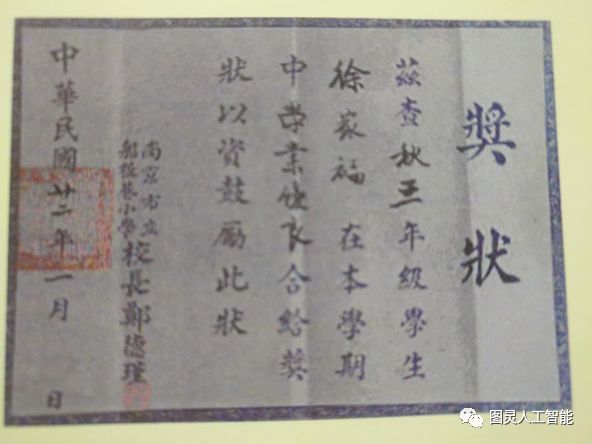 獎狀
茲查秋三年級學生
徐家福在本學期
中學業優良合給獎
狀以資鼓勵此狀
南京市立
船板巷小學校長鄭德瑾
中華民國廿二年一月 日
图灵人工智能